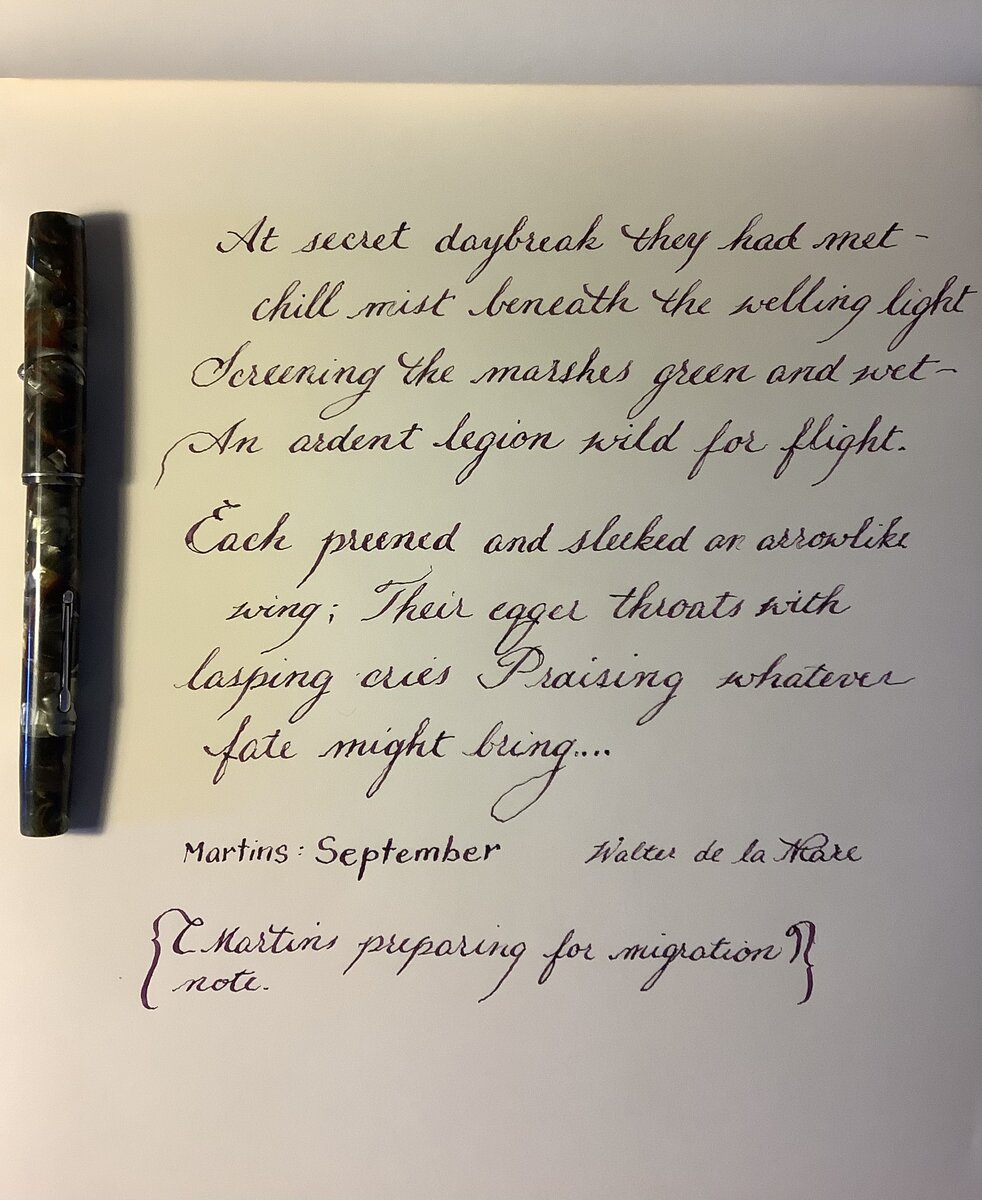 At secret daybreak they had met -
chill mist beneath the welling light
Screening the marshes green and wet -
An ardent legion wild for flight.
Each preened and sleeked an arrowlike
wing; Their egger throats with
lasping cries Praising whatever
fate might bring....
Martins: September Walter de la Mare
{ Martins preparing for migration }
note.